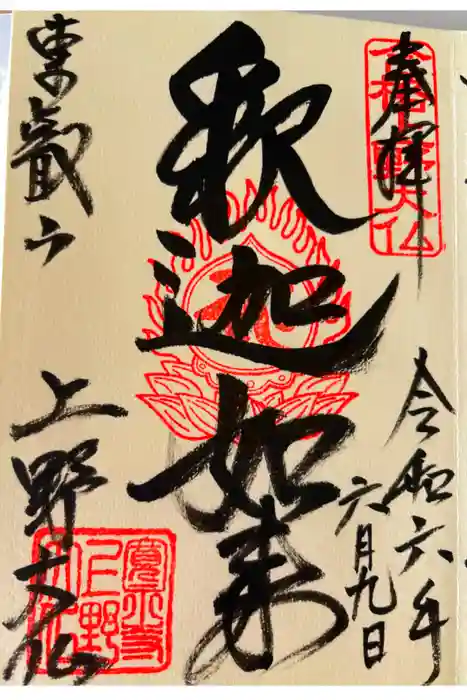 奉拝
令和六年
六月九日
釈迦如来
東叡山
上野大仏
上野大仏